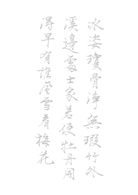 冰姿瓊骨淨無瑕竹外
溪邊處士家若使牡丹開
得早有誰風雪看梅花